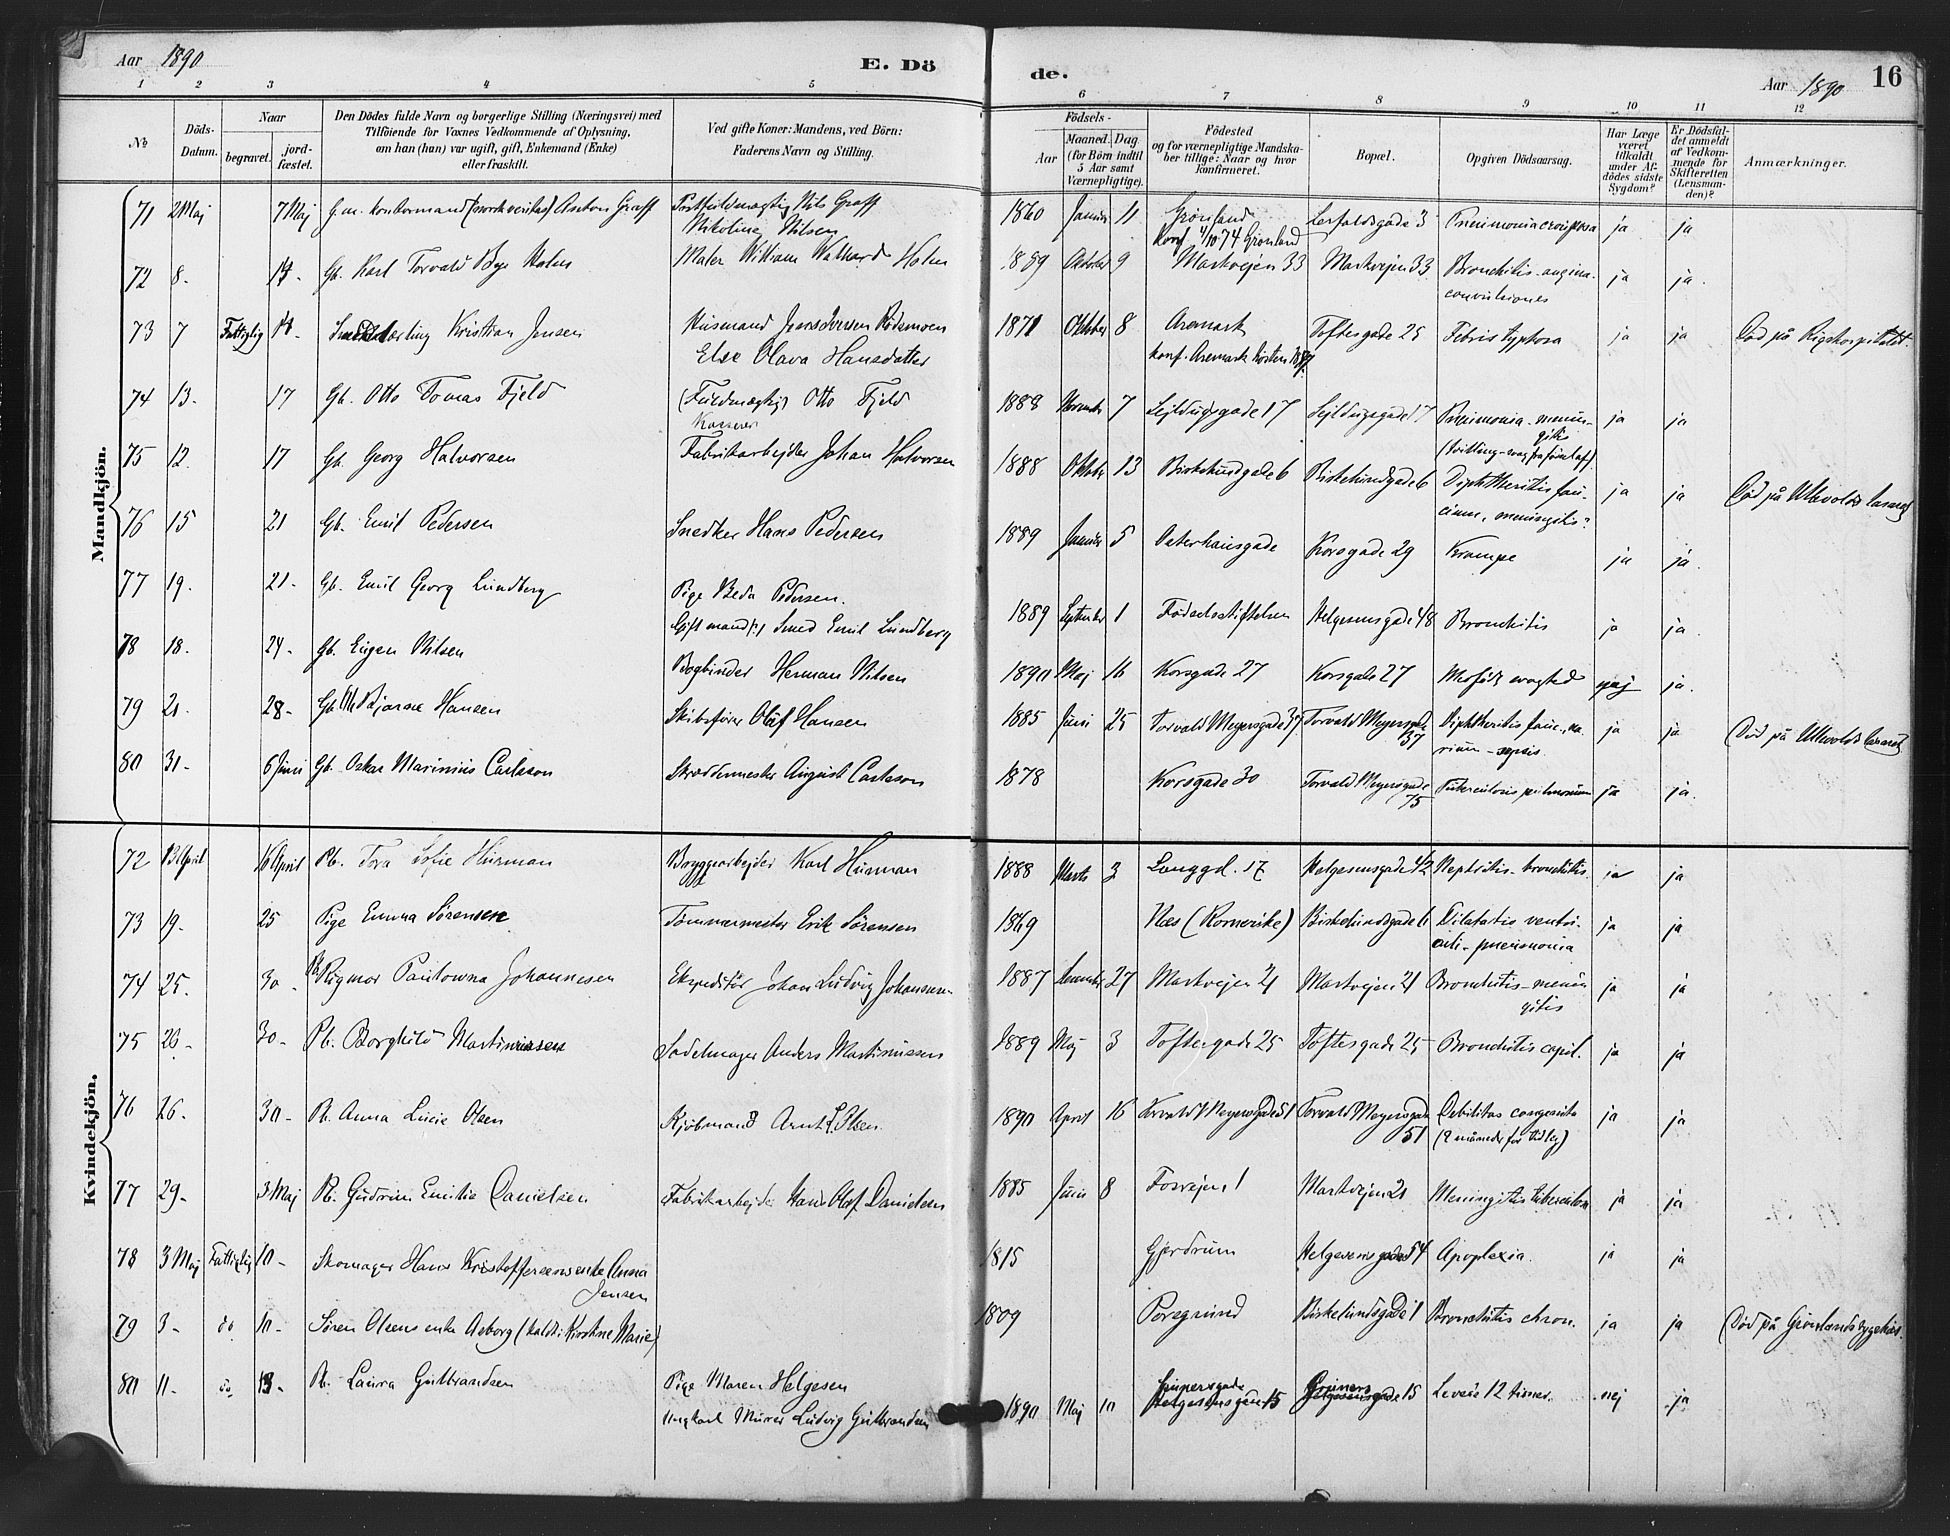 Aar 1890
E. Dö
de.
Aar 1890
16
1 2 3 4 5
6 7 8 9 10 11 12
No
Döds-Datum.
Naar
begravet.
jord-fæstet.
Den Dödes fulde Navn og borgerlige Stilling (Næringsvei) med
Tilföiende for Voxnes Vedkommende af Oplysning,
om han (hun) var ugift, gift, Enkemand (Enke)
eller fraskilt.
Ved gifte Koner: Mandens, ved Börn:
Faderens Navn og Stilling.
Födsels-
Aar
Maaned. Dag
(for Börn indtil
5 Aar samt
Værnepligtige).
Födested
og for værnepligtige Mandska-
ber tillige: Naar og hvor
konfirmeret.
Bopæl.
Opgiven Dödsaarsag.
Har Læge
været
tilkaldt
under Af-
dödes sidste
Sygdom?
Er Dödsfal-
det anmeldt
af Vedkom-
mende for
Skifteretten
(Lensman-
den)?
Anmærkninger.
Mandkjön.
71 2 Maj 7 Maj f.m. kontormand Anton Graff Nils Graff 1860 Januar 11 Grönland 3 ja ja
Nikoline Nilsen Konf 4/10 74 Grönland
72 8. 14 Gb. Karl Torvald Holm Maler William Holm 1889 Oktober 9 Markvejen 33 Markvejen 33 Bronchitis - angina. ja ja.
convulsiones
73 7 Fattiglig Kristian Jensen Husmand 1871 Oktober 8 Aremark Toftesgade 25 Febris typhosa ja ja Död på Rigshospitalet.
Else Olava Hansdatter konf. Aremark
74 13. 17 Gb. Otto Tomas Fjeld (Fuldmægtig) Otto Fjeld 1889 November 7 Sejldugsgade 17 Sejldugsgade 17 Pneumonia - menin- ja ja
Kasserer gitis
75 12. 17 Gb. Georg Halvorsen Fabrikarbejder Johan Halvorsen 1888 Oktober 13 Birkelundgade 6 Birkelundgade 6 Diphtheritis fau- ja ja Död på Ullevolds lasaret
cium, meningitis?
76 15 21 Gb. Emil Pedersen Snedker Hans Pedersen 1889 Januar 5 Osterhausgade Korsgade 29 Krampe ja ja.
77 19. 21- Gb. Emil Georg Lundberg Pige Beda Pedersen. 1889 September 1 Födselsstiftelsen Helgesensgade 48 Bronchitis ja ja.
Gift mand (?) Smed Emil Lundberg
78 18. 24- Gb. Eugen Nilsen Bogbinder Herman Nilsen 1890 Maj 16 Korsgade 27 Korsgade 27 svagted nej ja.
79 21. 28- Gb Bjarne Hansen Skibsförer Olaf Hansen 1885 Juni 25 Torvald Meyersgade 37 Torvald Meyersgade 37 Diphtheritis ja ja Död på Ullevolds lasaret
80 31- 6 Juni Gb. Oskar Marinius Carlsson Skræddermester August Carlsson 1878 Korsgade 30 Torvald Meyersgade 75 Tuberculosis pulmonum ja ja.
Kvindekjön.
72 13 April 16 April Pb. Tora Sofie Husman Bryggearbejder Karl Husman 1888 Marts 3 Langgd. 17 Helgesensgade 42 Nephritis - bronchitis. ja ja
73 19. 25 Pige Emma Sörensen Tömmermester Erik Sörensen 1869 Næs (Romerike) Birkelundsgade 6 Dilatatio ventri- ja ja
culi - pneumonia
74 25. 30. Pb Rigmor Paulowna Johannesen Ekspeditör Johan Ludvig Johannesen 1887 December 27 Markvejen 21 Markvejen 21 Bronchitis - menin- ja ja
gitis
75 26. 30- Pb. Borghild Martinussen Sadelmager Anders Martinussen 1889 Maj 3 Toftesgade 25 Toftesgade 25 Bronchitis capil. ja ja
76 26. 30- Pb. Anna Lucie Olsen Kjöbmand Arnt Olsen. 1890 April 16 Torvald Meyersgade 51 Torvald Meyersgade 51 Debilitas congenita ja ja
(2 måneder for tidlig)
77 29- 3 Maj Pb. Gudrun Emilie Danielsen Fabrikarbejder Hans Olaf Danielsen 1885 Juni 8 Fosvejen 1 Markvejen 21 Meningitis tuberculosa ja ja
78 3 Maj Fattiglig 10- Skomager Hans Kristoffersens enke Anna 1815 Gjerdrum Helgesensgade 54 Apoplexia. ja ja
Jensen
79 3- do 10- Sören Olsens enke Aaborg (kaldt: Kirstine Marie) 1809 Porsgrund Birkelundsgade 1 Bronchitis chron. ja ja Död på Grönlands sygehus.
80 11- do. 13- Pb. Laura Gulbrandsen Pige Maren Helgesen 1890 Maj 10 15 15 Levede 12 timer. nej ja
ungkarl Murer Ludvig Gulbrandsen